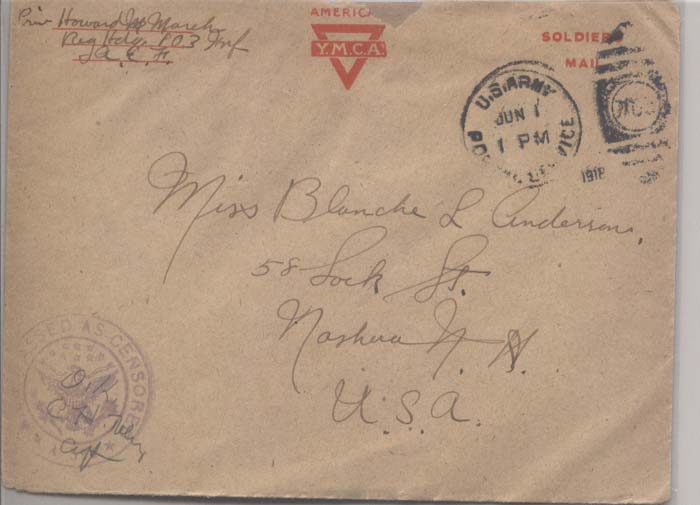 Priv Howard W March
Reg Hdq. 103 Inf
A. E. F.
AMERICAN
Y.M.C.A.
SOLDIERS
MAIL
U.S. ARMY
JUN 1
1 PM
POSTAL SERVICE
1918
Miss Blanche L Anderson,
58 Lock St.
Nashua N. H.
U.S.A.
PASSED AS CENSORED
O.K.
C H
Capt